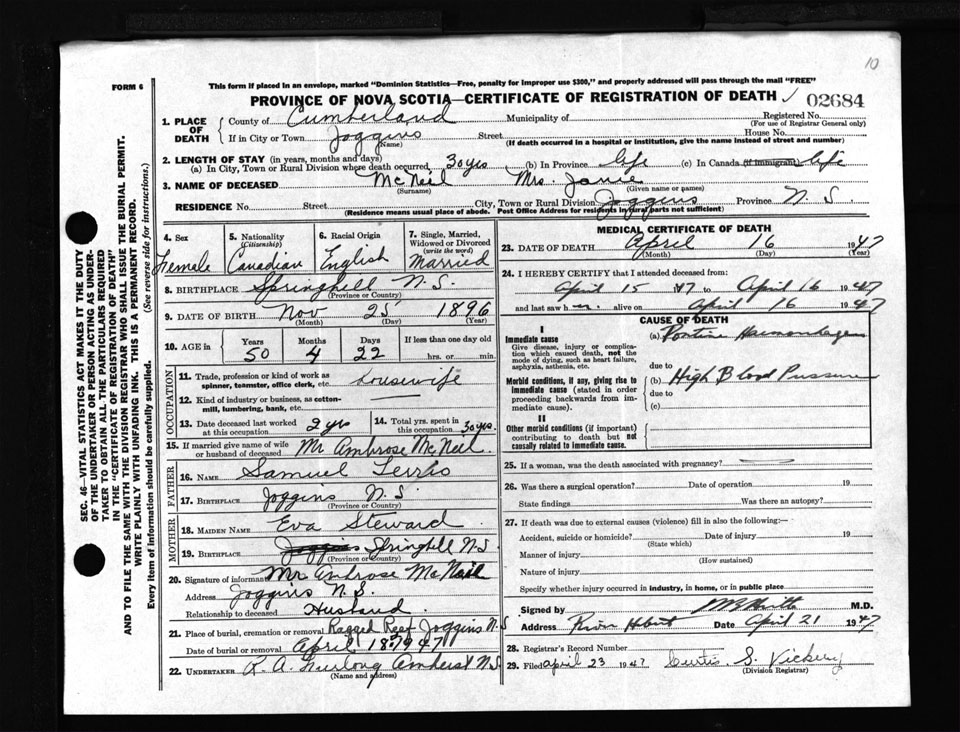 10
FORM 6
This form if placed in an envelope, marked "Dominion Statistics—Free, penalty for improper use $300," and properly addressed will pass through the mail "FREE"
PROVINCE OF NOVA SCOTIA—CERTIFICATE OF REGISTRATION OF DEATH 02684
1. PLACE OF DEATH
County of Cumberland Municipality of Registered No.
(For use of Registrar General only)
If in City or Town Joggins Street House No.
(Name) (If death occurred in a hospital or institution, give the name instead of street and number)
2. LENGTH OF STAY (in years, months and days)
(a) In City, Town or Rural Division where death occurred 30 yrs (b) In Province life (c) In Canada (if immigrant) life
3. NAME OF DECEASED McNeil Mrs. Janie
(Surname) (Given name or names)
RESIDENCE No. Street City, Town or Rural Division Joggins Province N.S.
(Residence means usual place of abode. Post Office Address for residents in rural parts not sufficient)
4. Sex
Female
5. Nationality
(Citizenship)
Canadian
6. Racial Origin
English
7. Single, Married, Widowed or Divorced
(write the word)
Married
8. BIRTHPLACE Springhill N.S.
(Province or Country)
9. DATE OF BIRTH Nov 25 1896
(Month) (Day) (Year)
10. AGE in Years Months Days If less than one day old
50 4 22 hrs. or min.
OCCUPATION
11. Trade, profession or kind of work as spinner, teamster, office clerk, etc. Housewife
12. Kind of industry or business, as cotton-mill, lumbering, bank, etc.
13. Date deceased last worked at this occupation 2 yrs
14. Total yrs. spent in this occupation 30 yrs.
15. If married give name of wife or husband of deceased Mr Ambrose McNeil.
FATHER
16. NAME Samuel Terrio
17. BIRTHPLACE Joggins N.S.
MOTHER
18. MAIDEN NAME Eva Steward
19. BIRTHPLACE Joggins Springhill N.S.
(Province or Country)
20. Signature of informant Mr Ambrose McNeil
Address Joggins N.S.
Relationship to deceased Husband.
21. Place of burial, cremation or removal Ragged Reef Joggins N.S
Date of burial or removal April 18 1947
22. UNDERTAKER R. A. Furlong Amherst N.S
(Name and address)
MEDICAL CERTIFICATE OF DEATH
23. DATE OF DEATH April 16 1947
(Month) (Day) (Year)
24. I HEREBY CERTIFY that I attended deceased from:
April 15 47 to April 16 1947
and last saw h er alive on April 16 1947
CAUSE OF DEATH
I
Immediate cause
Give disease, injury or complication which caused death, not the mode of dying, such as heart failure, asphyxia, asthenia, etc.
(a) Pontine Haemorrhage
due to
Morbid conditions, if any, giving rise to immediate cause (stated in order proceeding backwards from immediate cause).
(b) High Blood Pressure
due to
(c)
II
Other morbid conditions (if important) contributing to death but not causally related to immediate cause.
25. If a woman, was the death associated with pregnancy?
26. Was there a surgical operation? Date of operation 19
State findings Was there an autopsy?
27. If death was due to external causes (violence) fill in also the following:—
Accident, suicide or homicide? Date of injury 19
(State which)
Manner of injury
(How sustained)
Nature of injury
Specify whether injury occurred in industry, in home, or in public place
Signed by M.D.
Address River Hebert Date April 21 1947
28. Registrar's Record Number
29. Filed April 23 1947 Curtis S. Vickery
(Division Registrar)
SEC. 46—VITAL STATISTICS ACT MAKES IT THE DUTY
OF THE UNDERTAKER OR PERSON ACTING AS UNDER-
TAKER TO OBTAIN ALL THE PARTICULARS REQUIRED
IN THE "CERTIFICATE OF REGISTRATION OF DEATH"
AND TO FILE THE SAME WITH THE DIVISION REGISTRAR WHO SHALL ISSUE THE BURIAL PERMIT.
WRITE PLAINLY WITH UNFADING INK. THIS IS A PERMANENT RECORD.
Every item of Information should be carefully supplied. (See reverse side for instructions.)